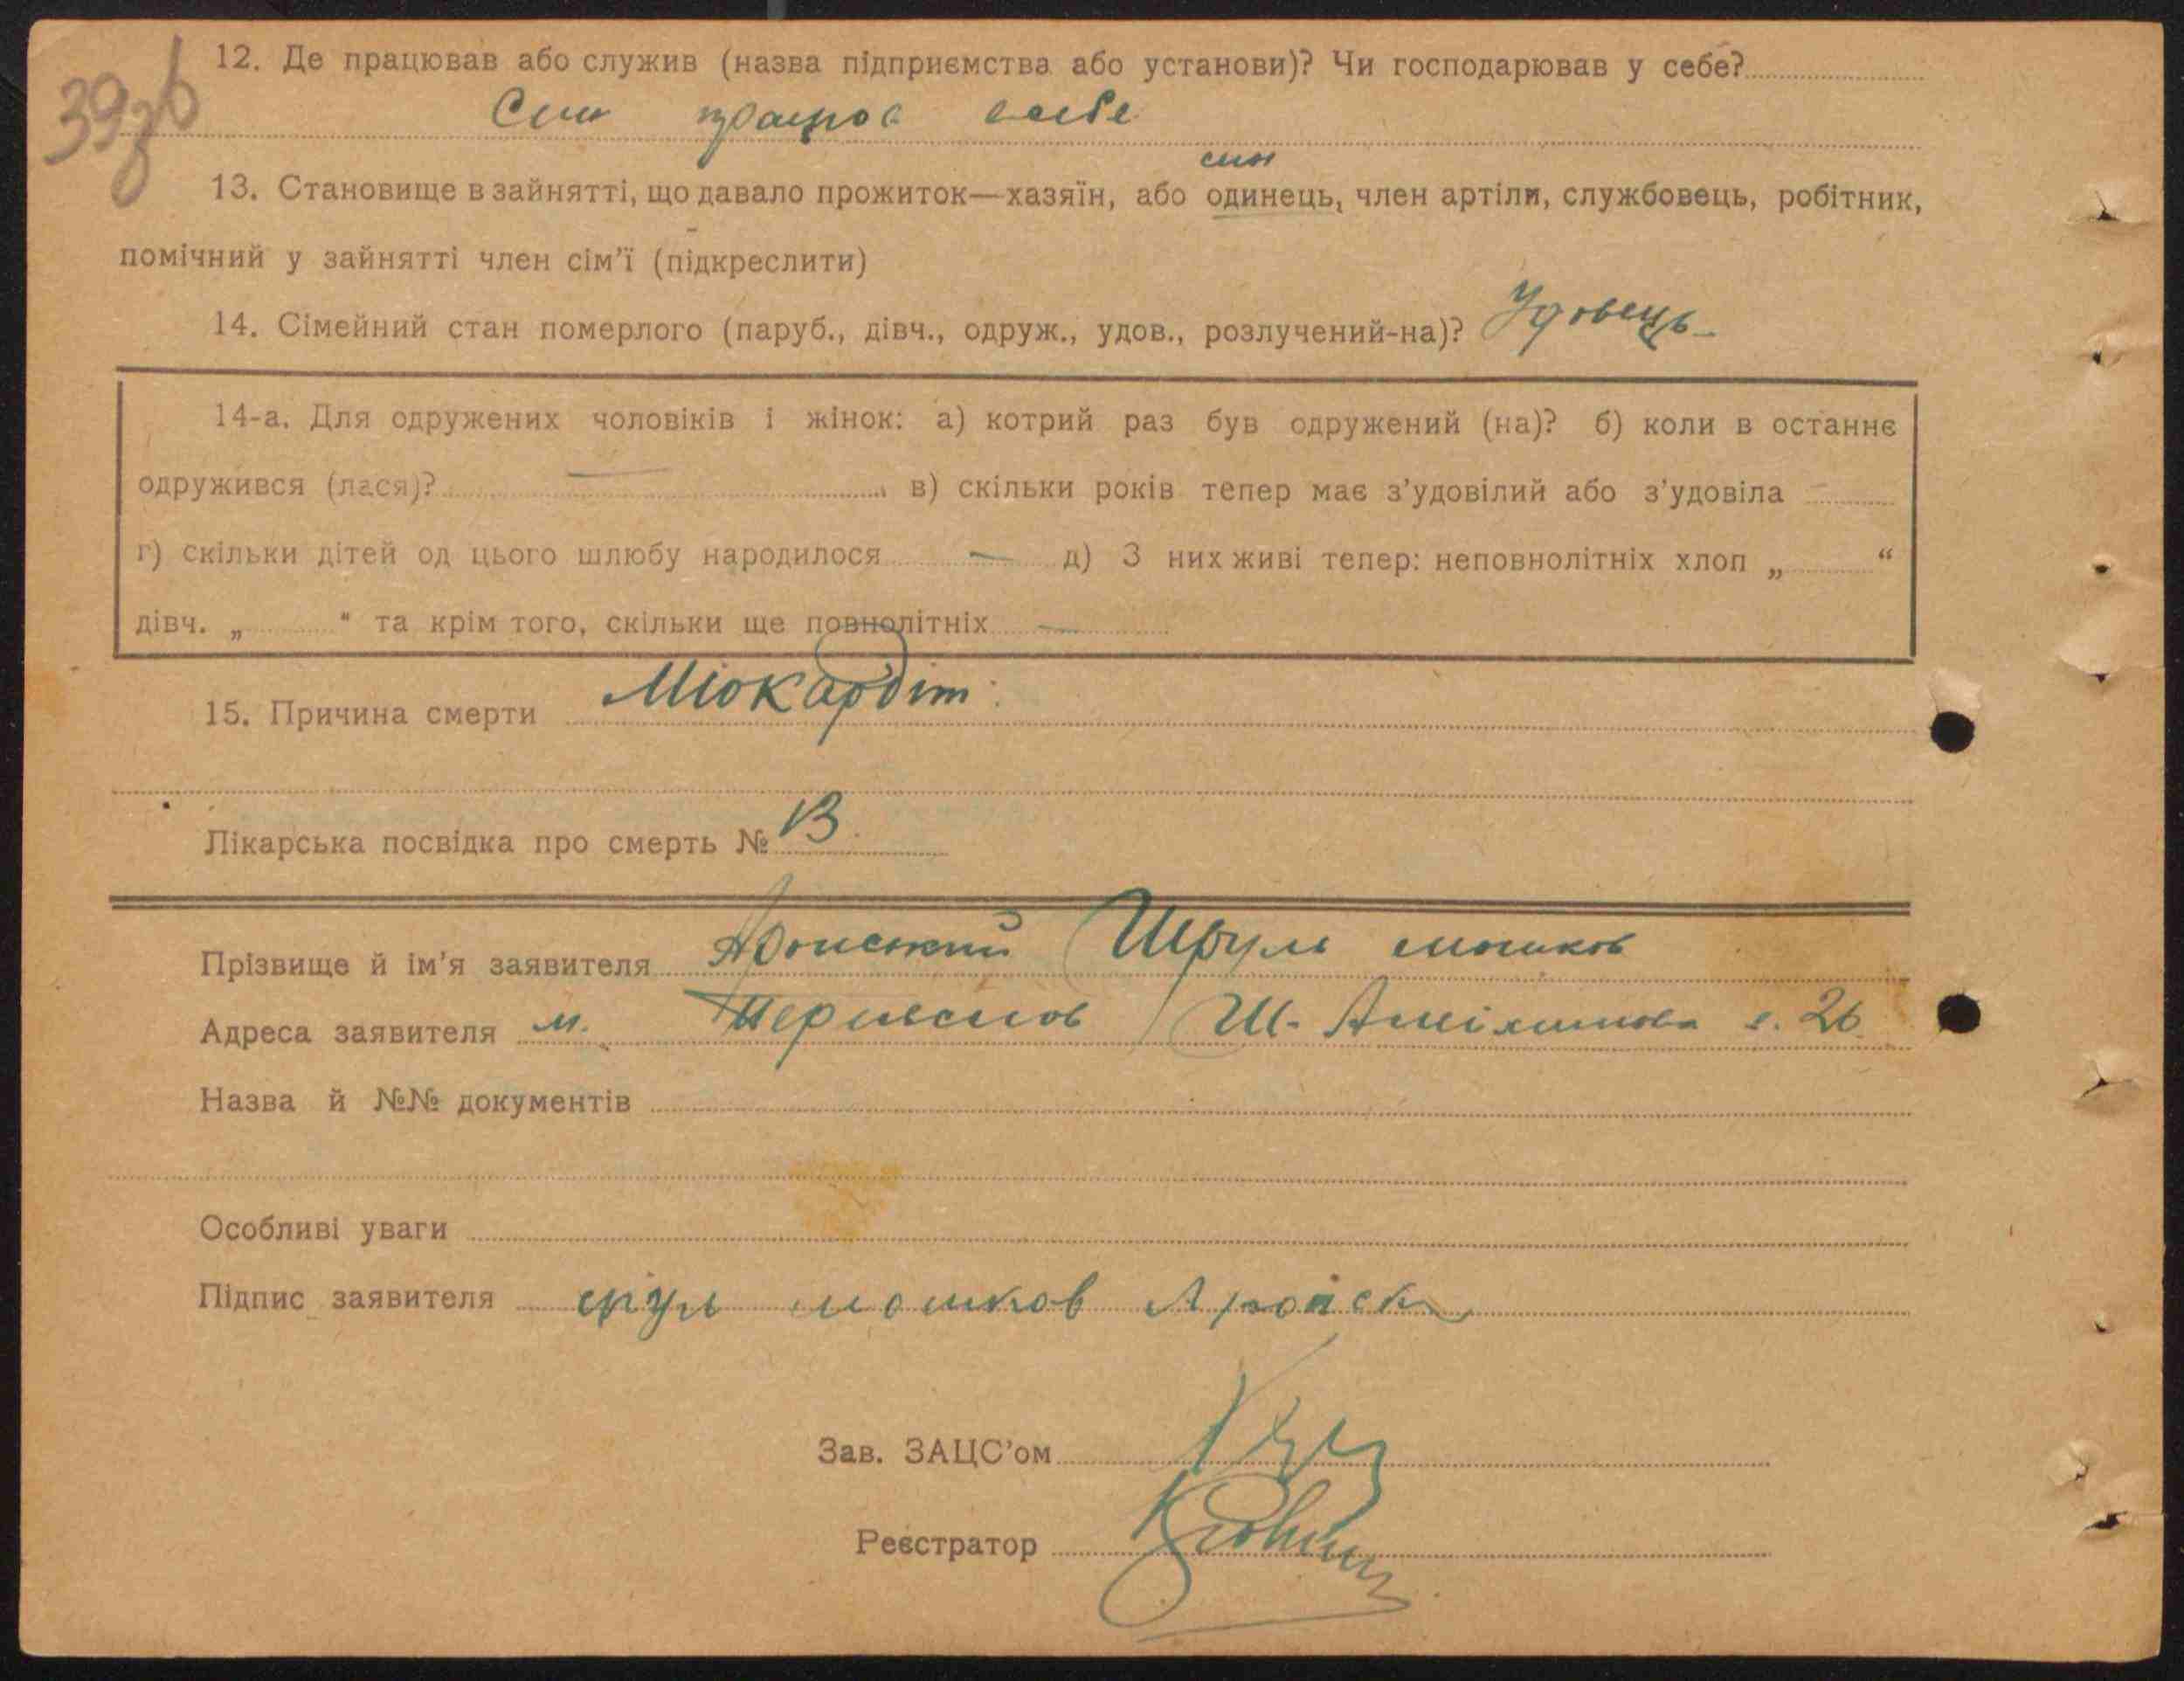 39зв
12. Де працював або служив (назва підприємства або установи)? Чи господарював у себе?
Син працює в себе
син
13. Становище в зайнятті, що давало прожиток—хазяїн, або одинець, член артіли, службовець, робітник,
помічний у зайнятті член сім'ї (підкреслити)
14. Сімейний стан померлого (паруб., дівч., одруж., удов., розлучений-на)? Удовець
14-а. Для одружених чоловіків і жінок: а) котрий раз був одружений (на)? б) коли в останнє
одружився (лася)? — в) скільки років тепер має з'удовілий або з'удовіла
г) скільки дітей од цього шлюбу народилося — д) З них живі тепер: неповнолітніх хлоп „ “
дівч. „ “ та крім того, скільки ще повнолітніх —
15. Причина смерти Міокардіт
Лікарська посвідка про смерть № 13
Прізвище й ім'я заявителя Шруль мошков
Адреса заявителя м. Ш. 26
Назва й №№ документів
Особливі уваги
Підпис заявителя срул мошков
Зав. ЗАЦС'ом
Реєстратор